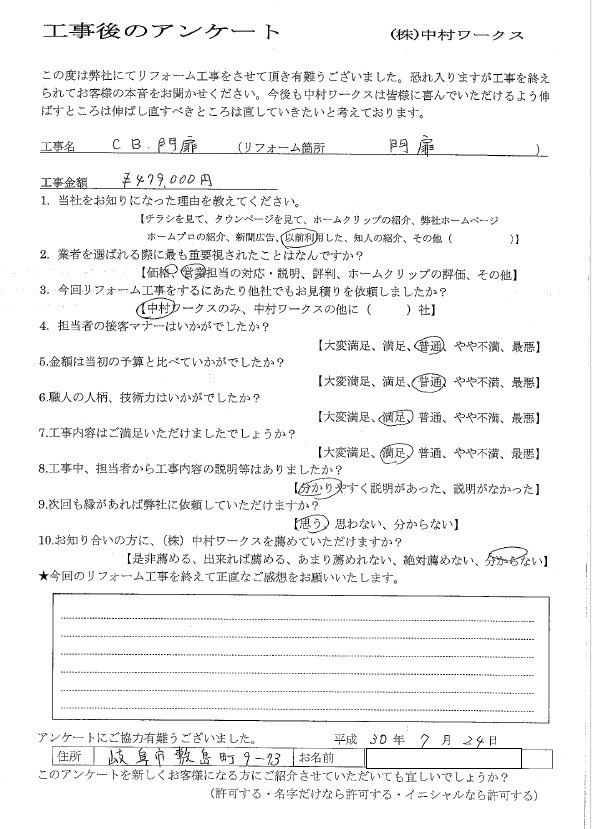 工事後のアンケート　(株)中村ワークス
この度は弊社にてリフォーム工事をさせて頂き有難うございました。恐れ入りますが工事を終え
られてお客様の本音をお聞かせください。今後も中村ワークスは皆様に喜んでいただけるよう伸
ばすところは伸ばし直すべきところは直していきたいと考えております。
工事名　CB.門扉　(リフォーム箇所　門扉　)
工事金額　¥479,000円
1. 当社をお知りになった理由を教えてください。
【チラシを見て、タウンページを見て、ホームクリップの紹介、弊社ホームページ
ホームプロの紹介、新聞広告、以前利用した、知人の紹介、その他（　　）】
2. 業者を選ばれる際に最も重要視されたことはなんですか？
【価格、営業担当の対応・説明、評判、ホームクリップの評価、その他】
3. 今回リフォーム工事をするにあたり他社でもお見積りを依頼しましたか？
【中村ワークスのみ、中村ワークスの他に（　　）社】
4. 担当者の接客マナーはいかがでしたか？
【大変満足、満足、普通、やや不満、最悪】
5.金額は当初の予算と比べていかがでしたか？
【大変満足、満足、普通、やや不満、最悪】
6.職人の人柄、技術力はいかがでしたか？
【大変満足、満足、普通、やや不満、最悪】
7.工事内容はご満足いただけましたでしょうか？
【大変満足、満足、普通、やや不満、最悪】
8.工事中、担当者から工事内容の説明等はありましたか？
【分かりやすく説明があった、説明がなかった】
9.次回も縁があれば弊社に依頼していただけますか？
【思う、思わない、分からない】
10.お知り合いの方に、（株）中村ワークスを薦めていただけますか？
【是非薦める、出来れば薦める、あまり薦めれない、絶対薦めない、分からない】
★今回のリフォーム工事を終えて正直なご感想をお願いいたします。
アンケートにご協力有難うございました。　平成 30 年 7 月 24 日
住所　岐阜市敷島町9-73　お名前
このアンケートを新しくお客様になる方にご紹介させていただいても宜しいでしょうか？
（許可する・名字だけなら許可する・イニシャルなら許可する）